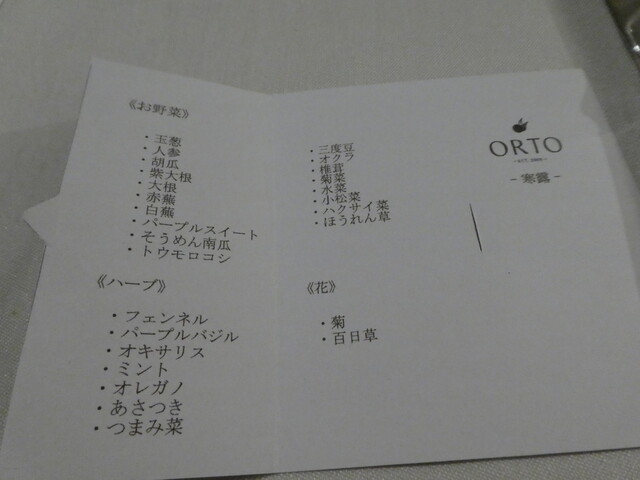 《お野菜》
・玉葱
・人参
・胡瓜
・紫大根
・大根
・赤蕪
・白蕪
・パープルスイート
・そうめん南瓜
・トウモロコシ
・三度豆
・オクラ
・椎茸
・菊菜
・水菜
・小松菜
・ハクサイ菜
・ほうれん草
《ハーブ》
・フェンネル
・パープルバジル
・オキサリス
・ミント
・オレガノ
・あさつき
・つまみ菜
《花》
・菊
・百日草
ORTO
- 寒露 -